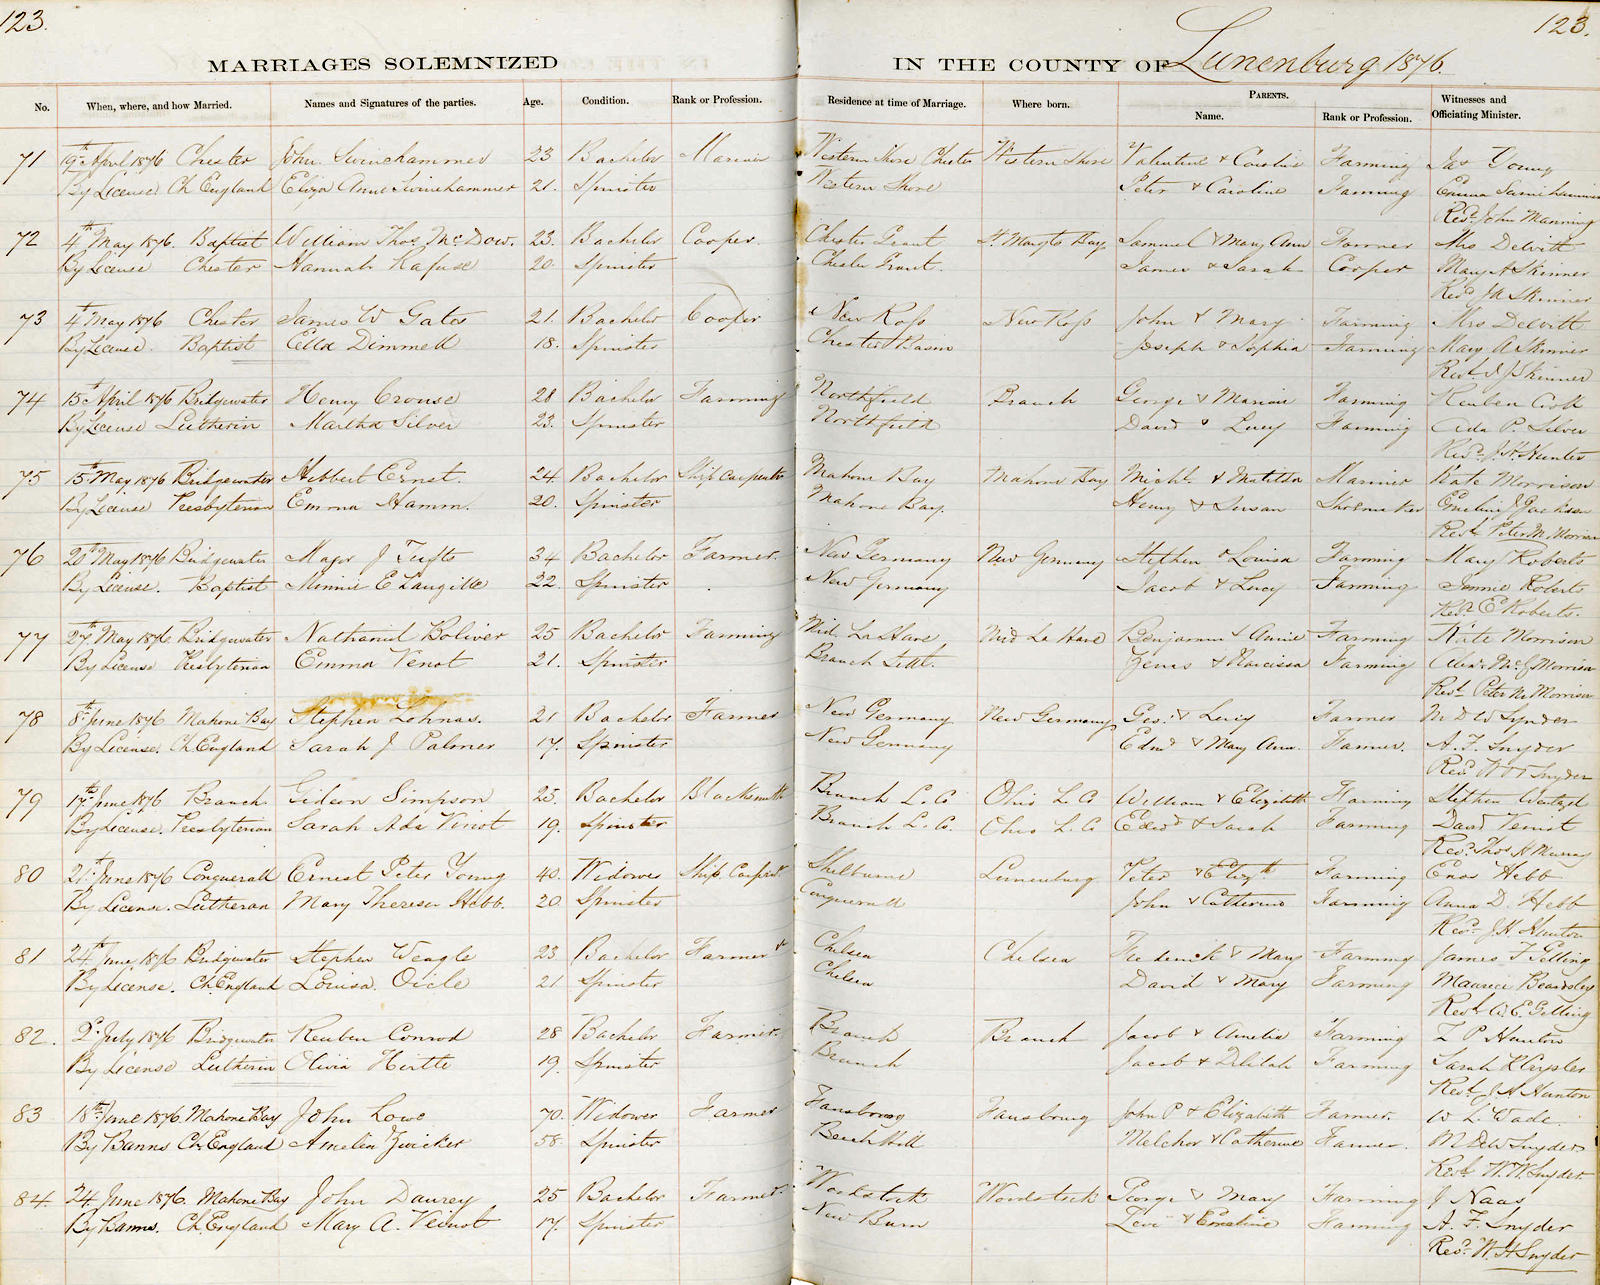 123. 123.
MARRIAGES SOLEMNIZED IN THE COUNTY OF Lunenburg 1876.
No. When, where, and how Married. Names and Signatures of the parties. Age. Condition. Rank or Profession. Residence at time of Marriage. Where born. PARENTS. Name. Rank or Profession. Witnesses and Officiating Minister.
71 19th April 1876 Chester John Swinehammer 23 Bachelor Mariner Western Shore Chester Western Shore Valentine & Caroline Farming Jas Young
By License Ch England Eliza Anne Swinehammer 21. Spinster Western Shore Peter & Caroline Farming Emma
Revd John Manning
72 4th May 1876. Baptist William Thos McDow. 23. Bachelor Cooper. Chester Grant St Margts Bay Samuel & Mary Ann Farmer Mrs Delvitt
By License Chester Hannah Rafuse 20. Spinster Chester Grant. James & Sarah Cooper Mary A Skinner
Revd J A Skinner
73 4th May 1876 Chester James W Gates 21. Bachelor Cooper New Ross New Ross John & Mary Farming Mrs Delvitt
By License. Baptist Ella Dimmell 18. Spinster Chester Basin Joseph & Sophia Farming Mary A Skinner
Revd I J Skinner
74 15th April 1876 Bridgewater Henry Crouse 28 Bachelor Farming Northfield Branch George & Marian Farming Reuben
By License Lutherin Martha Silver 23. Spinster Northfield David & Lucy Farming Ada P. Silver
Revd J. H. Hunter
75 15th May 1876 Bridgewater Hibbert Ernst. 24 Bachelor Ship Carpenter Mahone Bay Mahone Bay Michl. & Matilda Mariner Kate Morrison
By License Presbyterian Emma Hamm. 20. Spinster Mahone Bay. Henry & Susan Shoemaker Jackson
Revd Peter M. Morrison
76 20th May 1876 Bridgewater Major J Tufts 34 Bachelor Farmer. New Germany New Germany Stephen & Louisa Farming Mary Roberts
By License. Baptist Minnie E Langille 22. Spinster New Germany Jacob & Lucy Farming Jennie Roberts
Revd E Roberts.
77 27th May 1876. Bridgewater Nathanul Boliver 25 Bachelor Farming Mid. La Have Mid La Have Benjamin & Annie Farming Kate Morrison
By License Presbyterian Emma Venot 21. Spinster Branch Settl. Zenas & Narcissa Farming Alexr McG Morrison
Revd Peter M. Morrison
78 8th June 1876 Mahone Bay Stephen Lohnas. 21 Bachelor Farmer New Germany New Germany Geo. & Lucy Farmer M D W Synder
By License. Ch England Sarah J Palmer 17. Spinster New Germany Edmd & Mary Ann. Farmer. A. F. Snyder
Revd W H Snyder
79 17th June 1876 Branch Gideon Simpson 25. Bachelor Blacksmith Branch L. Co Ohio L. Co William & Elizabeth Farming Stephen
By License. Presbyterian Sarah Ada Vinot 19. Spinster Branch L. Co. Ohio L. Co Edwd & Sarah Farming David Veniot
Revd. Thos H Murray
80 21st June 1876 Conquerall Ernest Peter Young 40. Widower Ship Carpntr Shelburne Lunenburg Peter & Elizth Farming Enos Hebb
By License. Lutheran Mary Theresa Hebb. 20 Spinster Conquerall John & Catherine Farming Anna D. Hebb
Revd J. H. Hunton
81 24th June 1876 Bridgewater Stephen Weagle 23 Bachelor Farmer Chelsea Chelsea Frederick & Mary Farming James T Gelling
By License. Ch. England Louisa Oicle 21 Spinster Chelsea David & Mary Farming Maurice Beardsley
Revd W. E. Gelling
82. 2d July 1876 Bridgewater Reuben Conrod 28 Bachelor Farmer. Branch Branch Jacob & Amelia Farming L P Hunton
By License Lutherin Olivia Hirtle 19. Spinster Branch Jacob & Delilah Farming Sarah K Crysler
Revd J H Hunton
83 18th June 1876. Mahone Bay John Lowe 70. Widower Farmer Fausbourg Fausbourg John P & Elizabeth Farmer. W L. Wade.
By Banns Ch. England Amelia Zwicker 58. Spinster Beech Hill Melchor & Catherine Farmer. M DeW Snyder
Revd W. W. Snyder.
84. 24 June 1876. Mahone Bay John Daurey 25 Bachelor Farmer. Woodstock Woodstock George & Mary Farming J Naas
By Banns. Ch. England Mary A. Veinot 17. Spinster New Burn Levi & Ernestine Farming A. F. Snyder
Revd. W. H Snyder